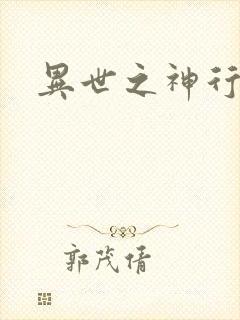 異世之神行
郭茂倩